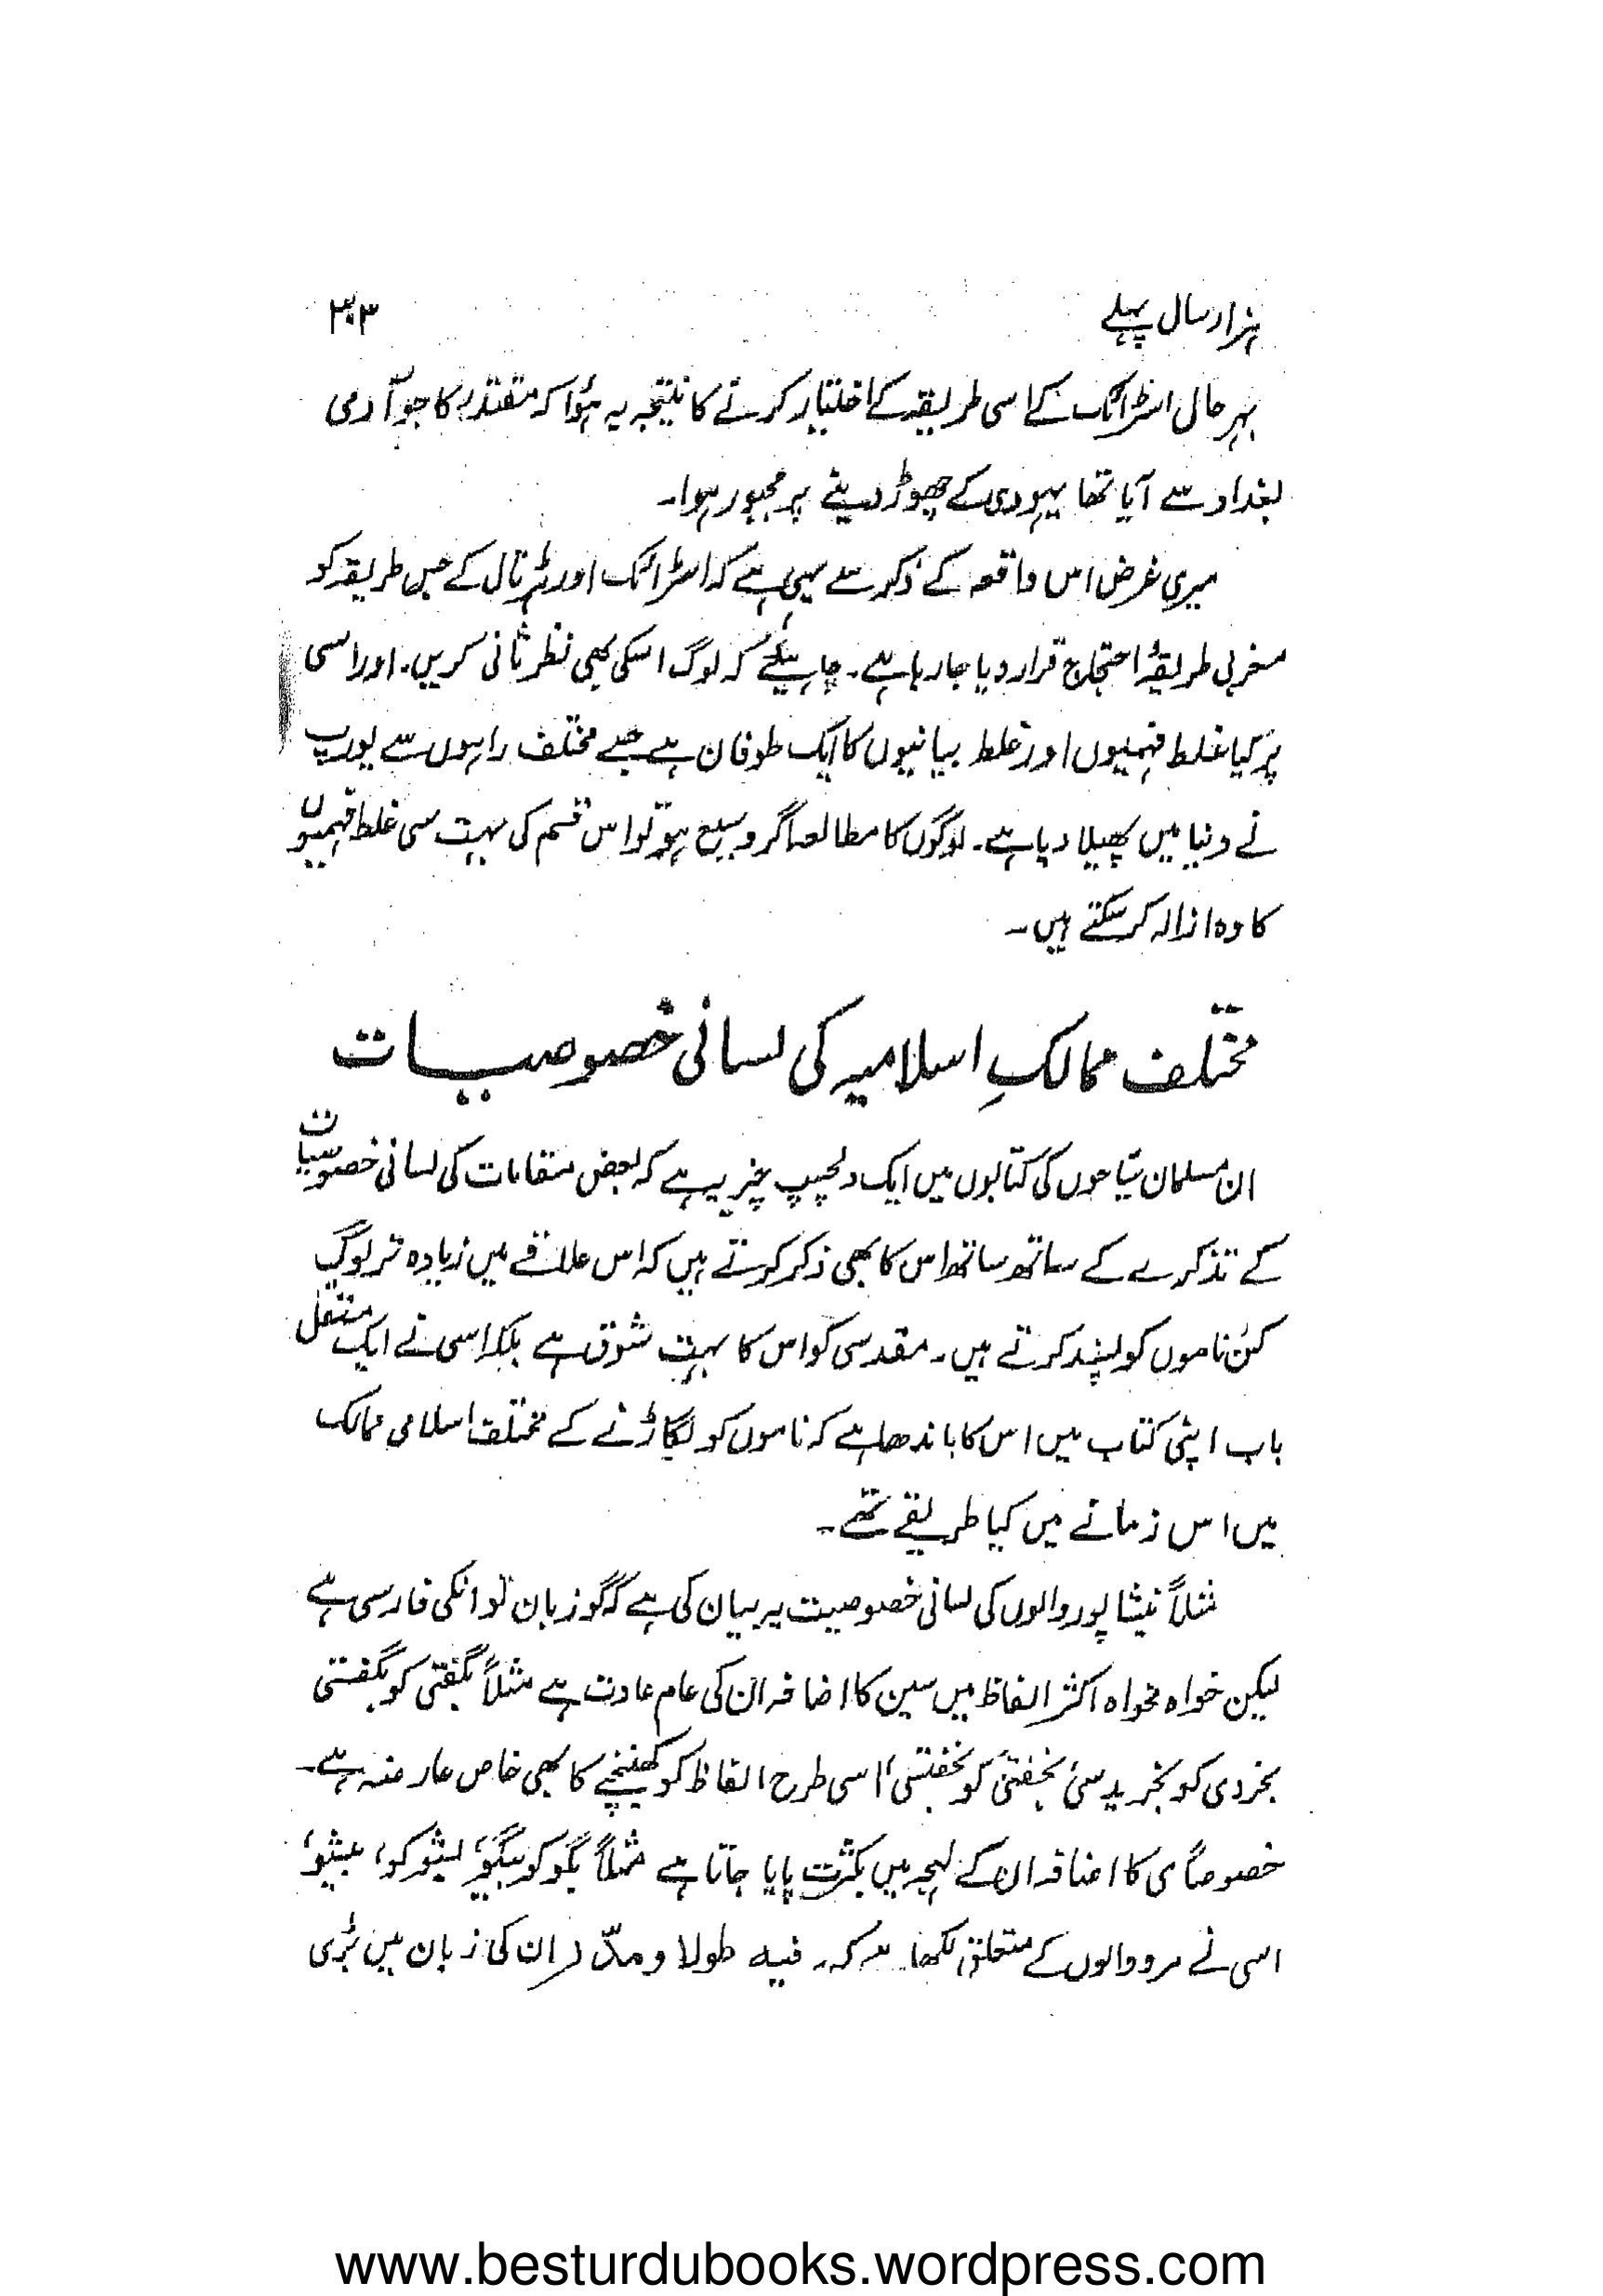 ہزار سال پہلے ۳۰۳
بہر حال اسٹرائک کے اسی طریقہ کے اختیار کرنے کا نتیجہ یہ ہؤا کہ مقتدر کا جو آدمی
بغداد سے آیا تھا یہودی کے چھوڑ دینے پر مجبور ہوا۔
میری غرض اس واقعہ کے ذکر سے یہی ہے کہ اسٹرائک اور ہڑتال کے جس طریقہ کو
مغربی طریقۂ احتجاج قرار دیا جا رہا ہے۔ چاہیئے کہ لوگ اسکی بھی نظر ثانی کریں۔ اور اسی
پر کیا غلط فہمیوں اور غلط بیانیوں کا ایک طوفان ہے جسے مختلف راہوں سے یورپ
نے دنیا میں پھیلا دیا ہے۔ لوگوں کا مطالعہ اگر وسیع ہو تو اس قسم کی بہت سی غلط فہمیوں
کا وہ ازالہ کر سکتے ہیں۔
مختلف ممالکِ اسلامیہ کی لسانی خصوصیات
ان مسلمان سیّاحوں کی کتابوں میں ایک دلچسپ چیز یہ ہے کہ بعض مقامات کی لسانی خصوصیات
کے تذکرے کے ساتھ ساتھ اس کا بھی ذکر کرتے ہیں کہ اس علاقے میں زیادہ تر لوگ
کن ناموں کو پسند کرتے ہیں۔ مقدسی کو اس کا بہت شوق ہے بلکہ اسی نے ایک مستقل
باب اپنی کتاب میں اس کا باندھا ہے کہ ناموں کو بگاڑنے کے مختلف اسلامی ممالک
میں اس زمانے میں کیا طریقے تھے۔
مثلاً نیشاپور والوں کی لسانی خصوصیت یہ بیان کی ہے کہ گو زبان تو انکی فارسی ہے
لیکن خواہ مخواہ اکثر الفاظ میں سین کا اضافہ ان کی عام عادت ہے مثلاً بگفتی کو بگفستی
بخردی کو بخریدسی، بخفتی کو بخفتسی، اسی طرح الفاظ کو کھینچنے کا بھی خاص عارضہ ہے۔
خصوصاً ی کا اضافہ ان کے لہجہ میں بکثرت پایا جاتا ہے مثلاً بگو کو بیگو، بشو کو، بیشو،
اسی نے مرو والوں کے متعلق لکھا ہے کہ۔ فیہ طولا و مدّ ان کی زبان میں بڑی
www.besturdubooks.wordpress.com